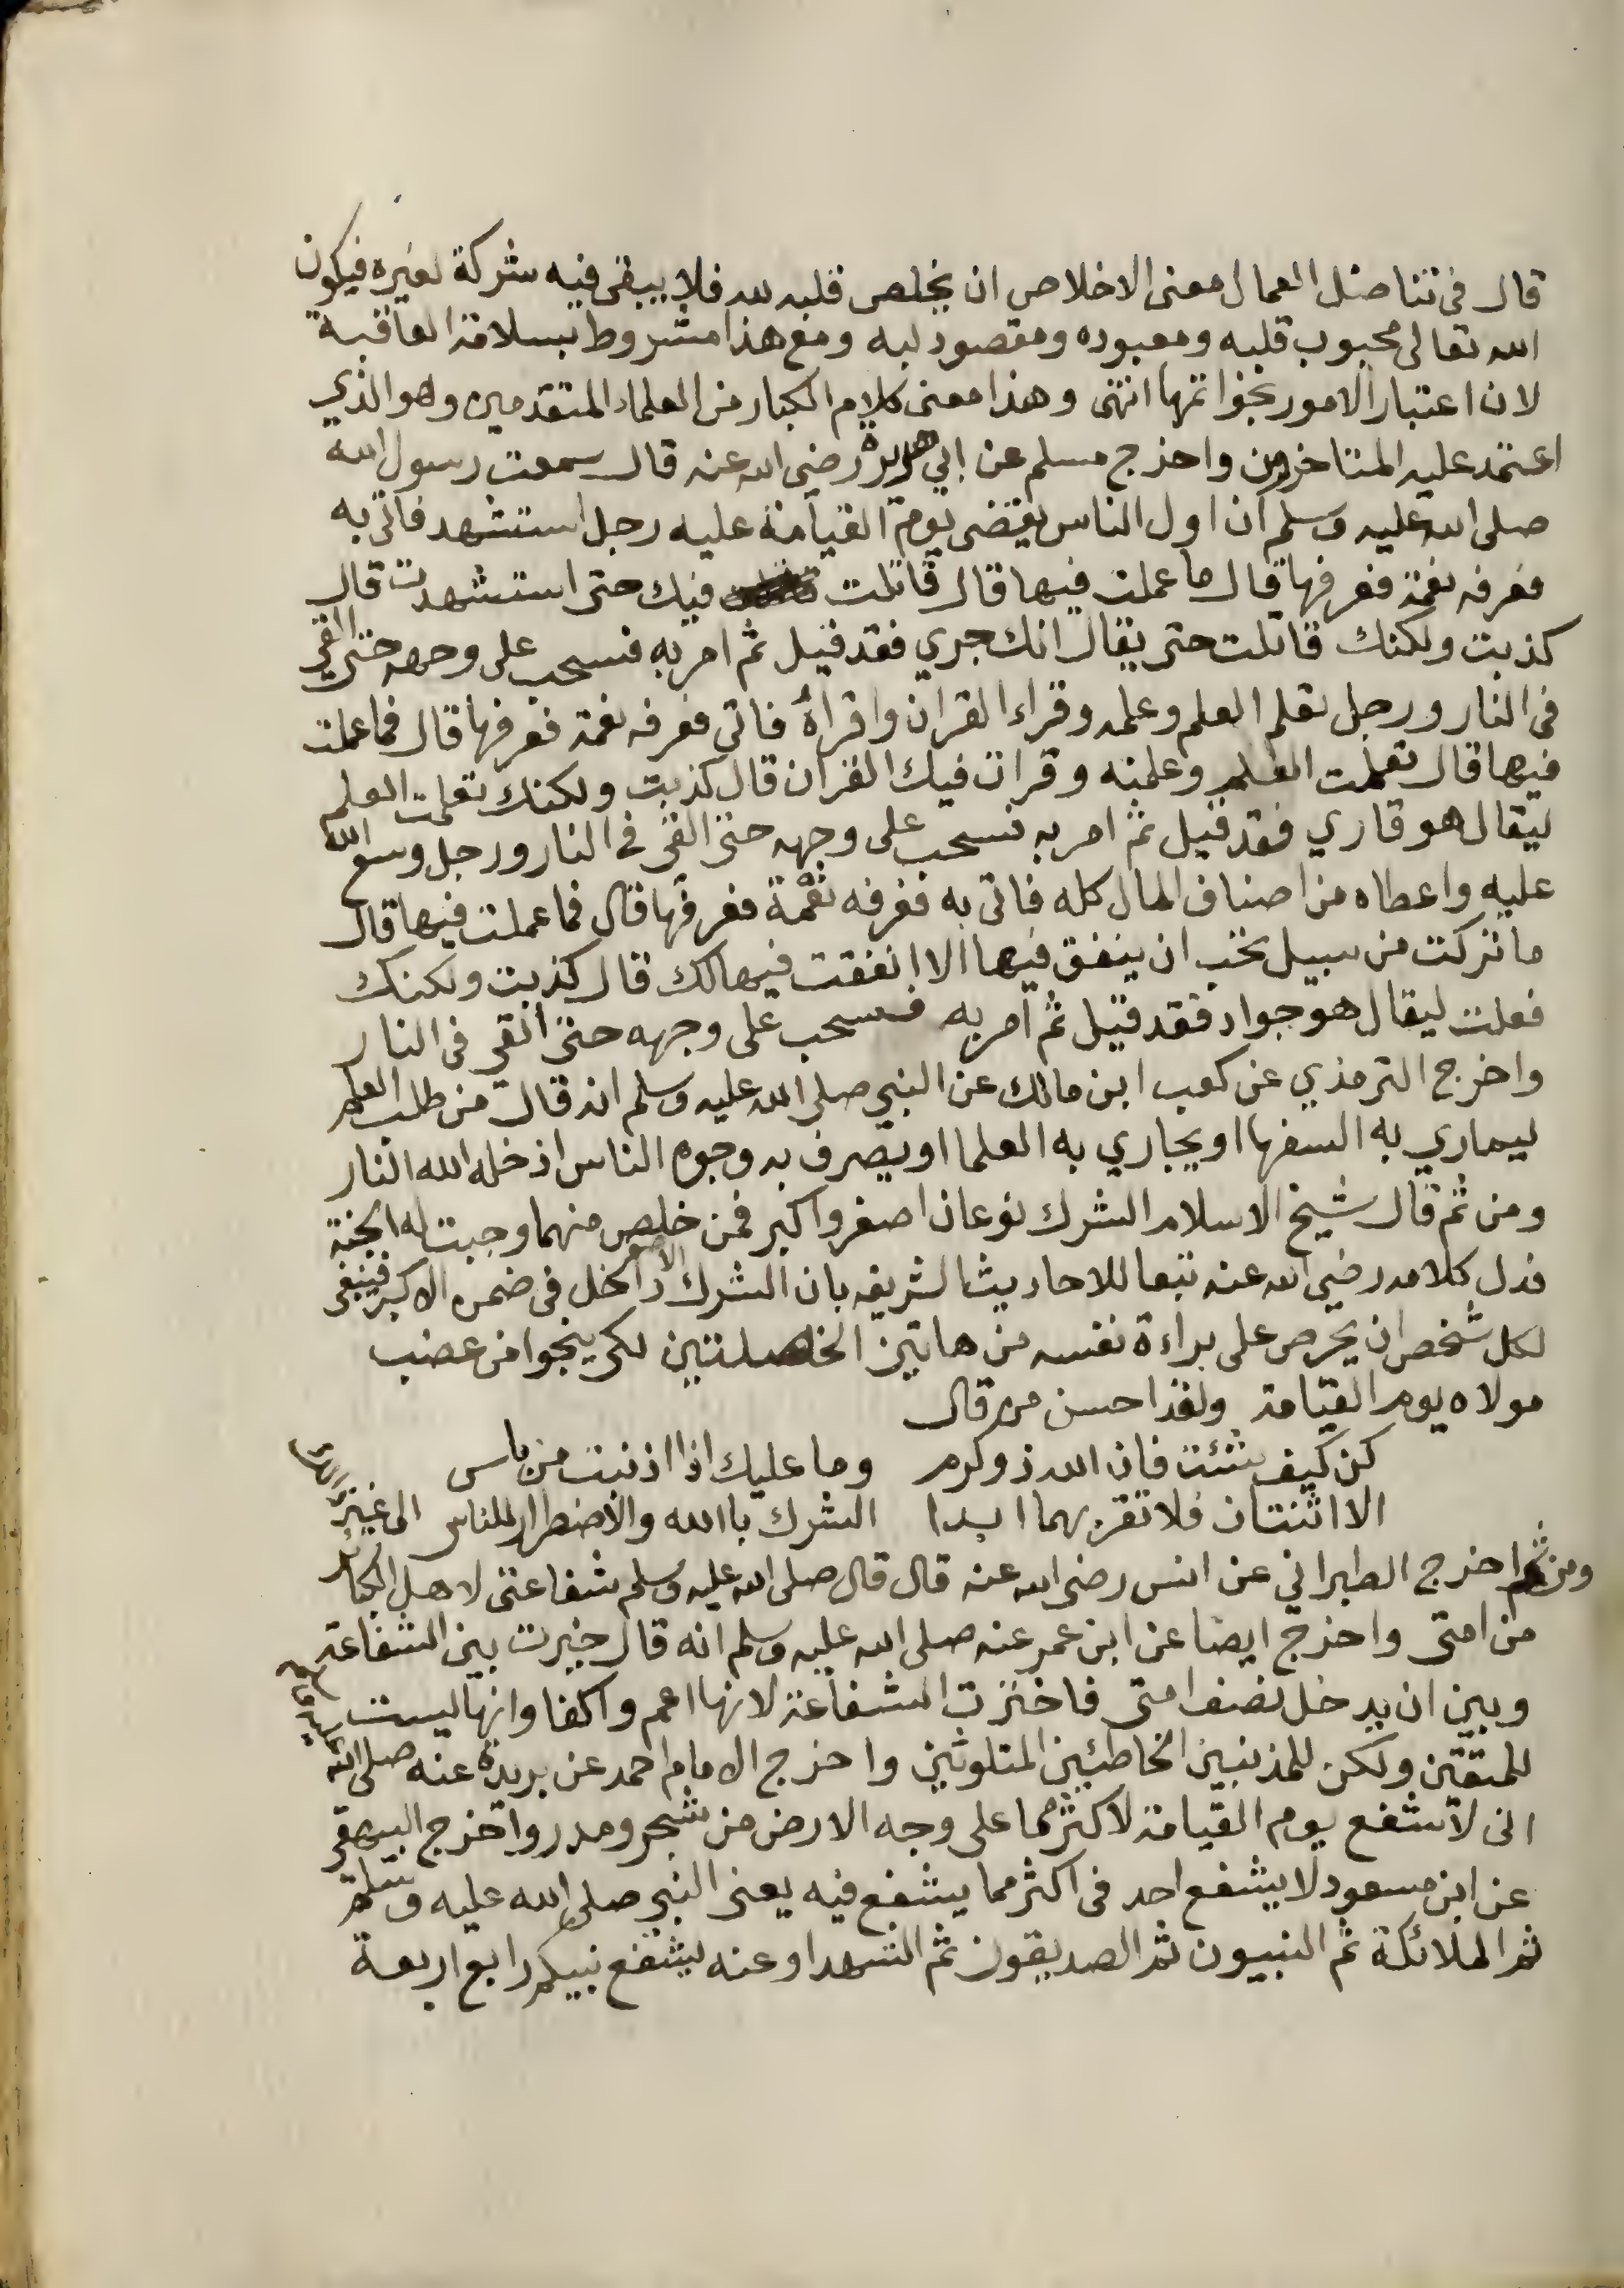 قال في تناضل العمال معنى الاخلاص ان يخلص قلبه لله فلا يبقى فيه شركة لغيره فيكون
الله تعالى محبوب قلبه ومعبوده ومقصود لبه ومع هذا مشروط بسلامة العاقبة
لان اعتبار الامور بخواتمها انتهى وهذا معنى كلام الكبار من العلماء المتقدمين وهو الذي
اعتمد عليه المتاخرون واخرج مسلم عن ابي هريرة رضي الله عنه قال سمعت رسول الله
صلى الله عليه وسلم ان اول الناس يقتضى يوم القيامة عليه رجل استشهد فاتى به
فعرفه نعمة فعرفها قال ما عملت فيها قال قاتلت فيك حتى استشهدت قال
كذبت ولكنك قاتلت حتى يقال انك جري فقد قيل ثم امر به فسحب على وجهه حتى القي
في النار ورجل تعلم العلم وعلمه وقراء القران واقراهُ فاتى فعرفه نعمة فعرفها قال فما عملت
فيها قال تعلمت العلم وعلمته وقرات فيك القران قال كذبت ولكنك تعلمت العلم
ليقال هو قاري فقد قيل ثم امر به فسحب على وجهه حتى القي في النار ورجل وسع الله
عليه واعطاه من اصناف المال كله فاتى به فعرفه نعمة فعرفها قال فما عملت فيها قال
ما تركت من سبيل تحب ان ينفق فيها الا انفقت فيها لك قال كذبت ولكنك
فعلت ليقال هو جواد فقد قيل ثم امر به فسحب على وجهه حتى ألقي في النار
واخرج الترمذي عن كعب ابن مالك عن النبي صلى الله عليه وسلم انه قال من طلب العلم
ليماري به السفها او يجاري به العلما او يصرف به وجوه الناس اذخله الله النار
ومن ثم قال شيخ الاسلام الشرك نوعان اصغر واكبر فمن خلص منهما وجبت له الجنة
فدل كلامه رضي الله عنه تبعا للاحاديث الشريفه بان الشرك الاصغر داخل في ضمن الاكبر فينبغي
لكل شخص ان يحرص على براءة نفسه من هاتين الخصلتين لكي ينجوا من غضب
مولاه يوم القيامة ولقذ احسن من قال
كن كيف شئت فان الله ذو كرم وما عليك اذا اذنبت من باس
الا اثنتان فلا تقربهما ابدا الشرك باالله والاضطرار للناس الى غير
ومن ثم اخرج الطبراني عن انس رضي الله عنه قال قال صلى الله عليه وسلم شفاعتي لاهل الكبائر
من امتى واخرج ايضا عن ابن عمر عنه صلى الله عليه وسلم انه قال خيرت بين الشفاعة
وبين ان يدخل نصف امتى فاخترت الشفاعة لانها اعم واكفا وانها ليست
للمتقين ولكن للمذنبين الخاطئين المتلوثين واخرج الامام احمد عن بريدة عنه صلى الله عليه
انى لاشفع يوم القيامة لاكثر مما على وجه الارض من شجر ومدر واخرج البيهقي
عن ابن مسعود لا يشفع احد في اكثر مما يشفع فيه يعنى النبي صلى الله عليه وسلم
ثم الملائكة ثم النبيون ثم الصديقون ثم الشهدا وعنه يشفع نبيكم رابع اربعة